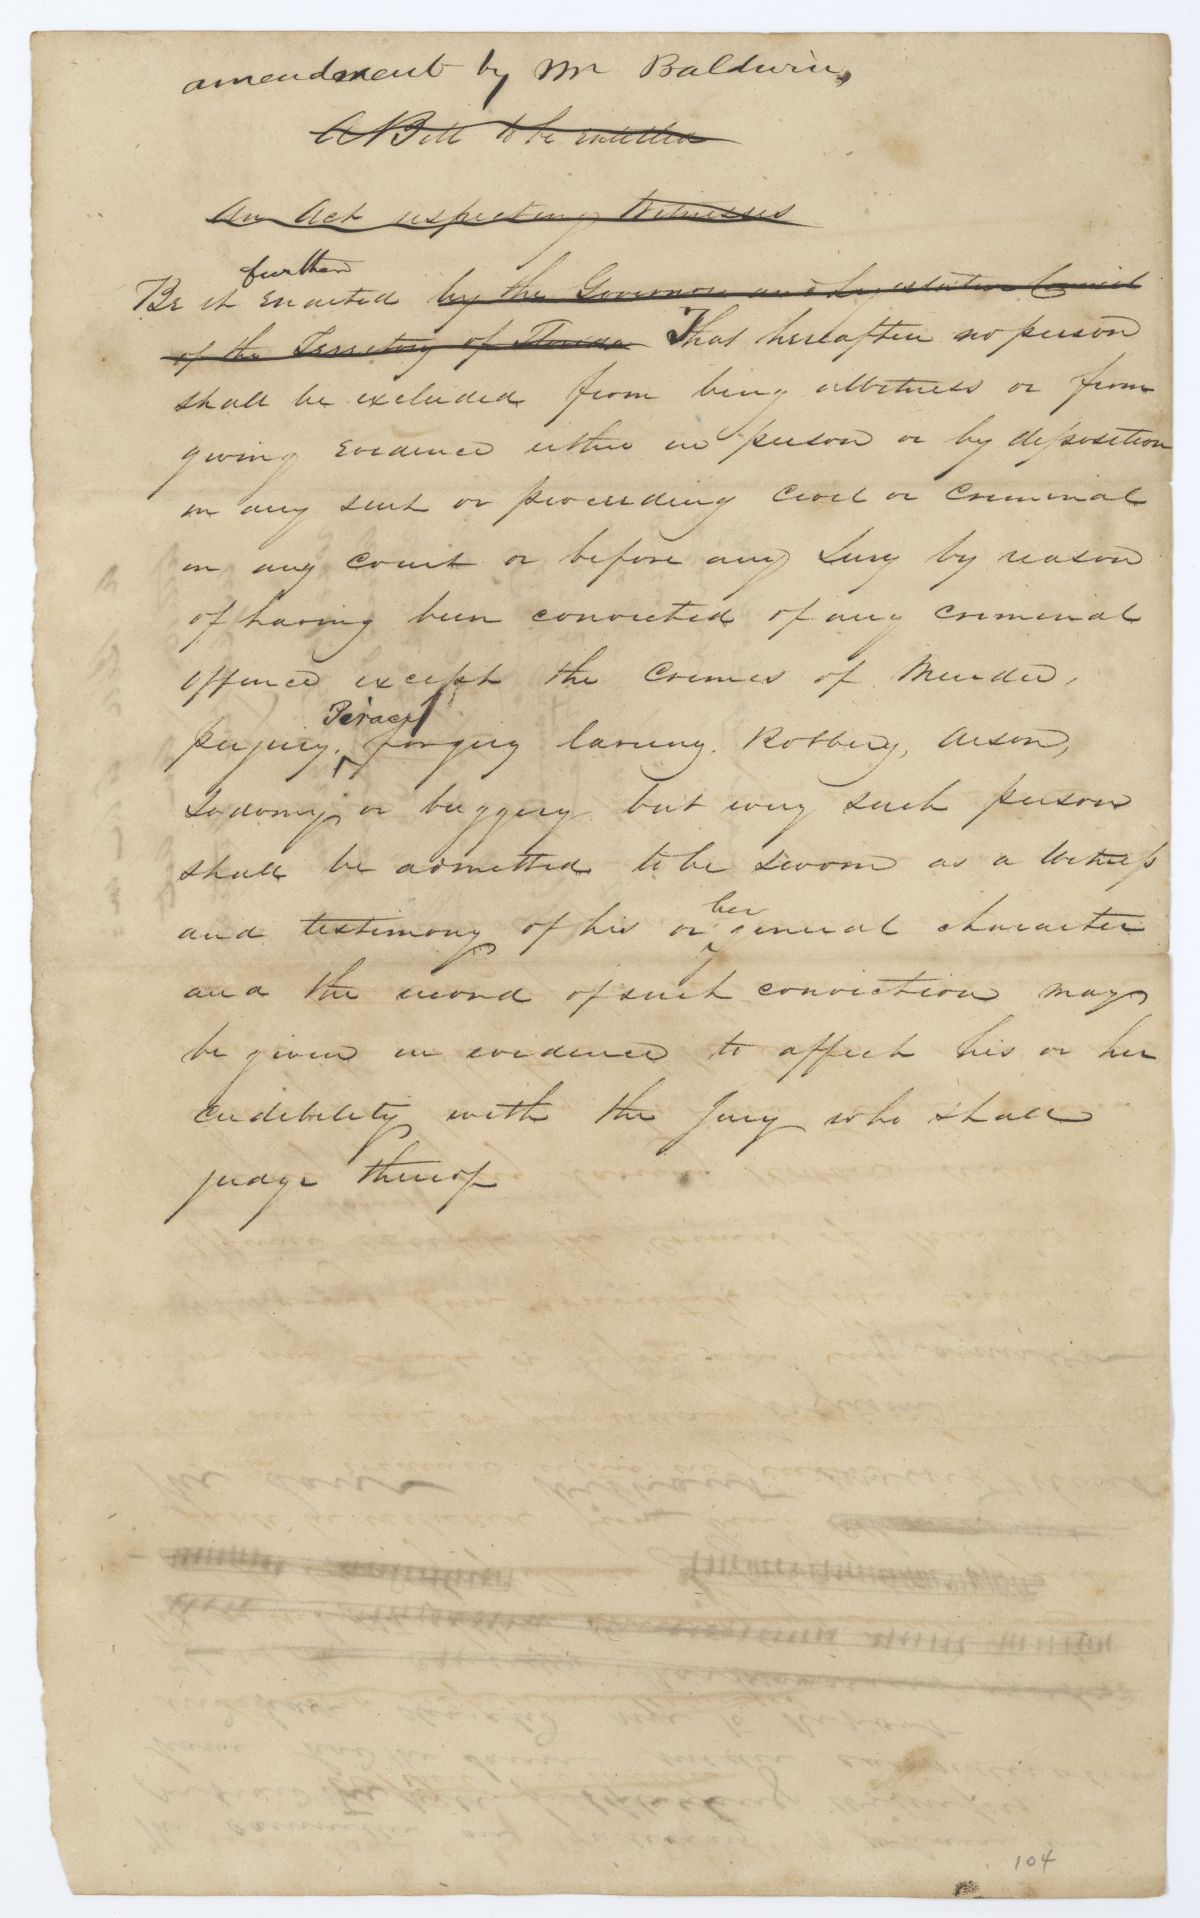 amendment by Mr Baldwin,
A Bill to be entitled
An Act respecting Witnesses
further
Be it Enacted by the Governor and Legislative Council
of the Territory of Florida That hereafter no person
shall be excluded from being a Witness or from
giving Evidence either in person or by deposition
in any suit or proceeding Civil or Criminal
in any Court or before any Jury by reason
of having been convicted of any Criminal
offence except the Crimes of Murder,
Piracy
perjury, forgery larceny. Robbery, Arson,
Sodomy, or buggery but every such person
shall be admitted to be sworn as a Witness
her
and testimony of his or general character
and the record of such conviction may
be given in evidence to affect his or her
credibility with the Jury who shall
judge thereof
104